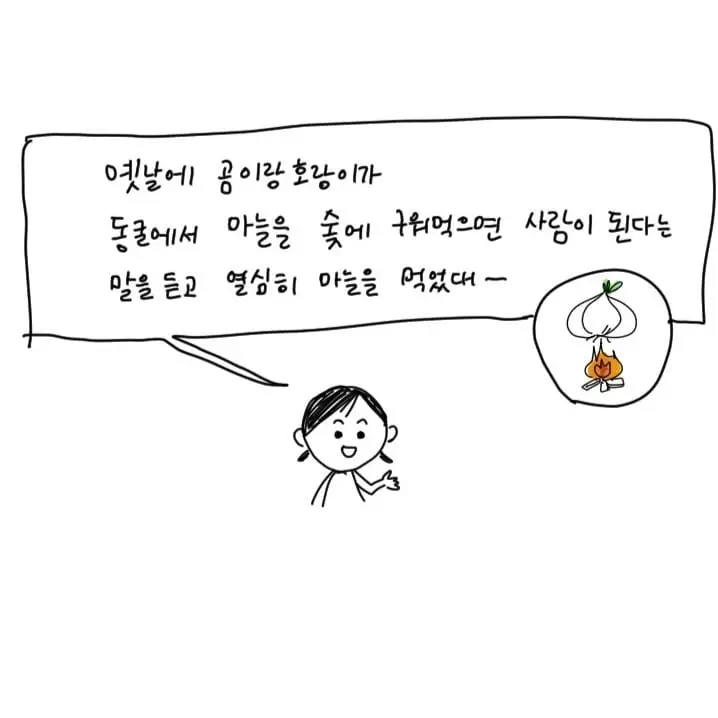 옛날에 곰이랑 호랑이가
동굴에서 마늘을 숯에 구워먹으면 사람이 된다는
말을 듣고 열심히 마늘을 먹었대~